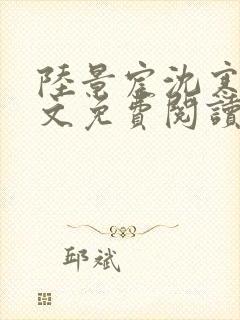 陸景宦沈寒
文免費閱讀
邱斌